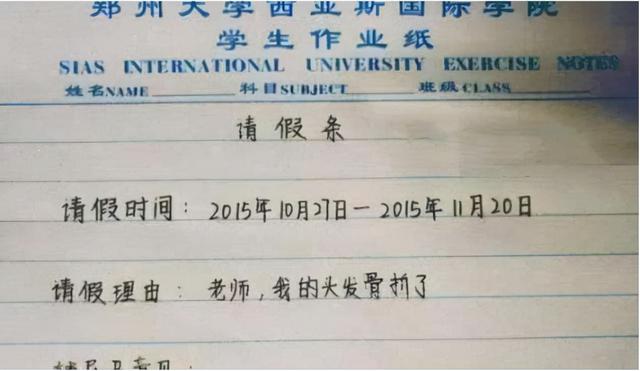 郑州大学西亚斯国际学院
学生作业纸
SIAS INTERNATIONAL UNIVERSITY EXERCISE NOTES
姓名NAME 科目SUBJECT 班级CLASS
请假条
请假时间: 2015年10月27日—2015年11月20日
请假理由: 老师,我的头发骨折了